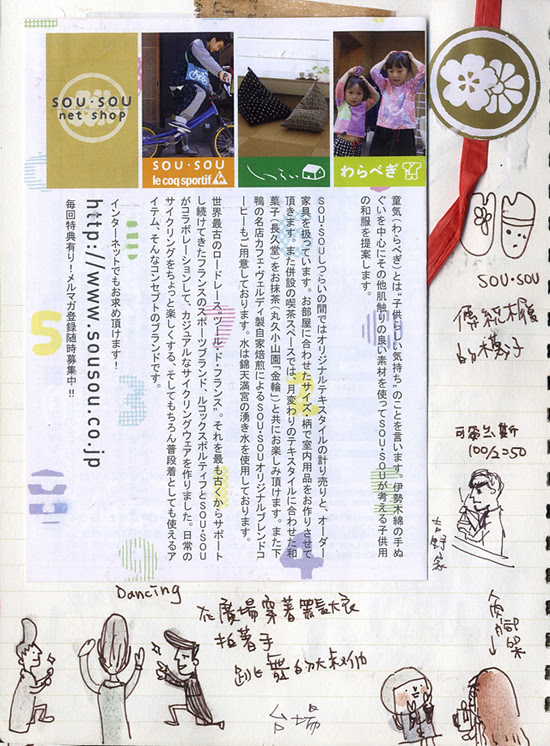 SOU・SOU
net shop
SOU・SOU
le coq sportif
わらべぎ
童気（わらべぎ）とは“子供らしい気持ち”のことを言います。伊勢木綿の手ぬ
ぐいを中心にその他肌触りの良い素材を使ってSOU・SOUが考える子供用
の和服を提案します。
SOU・SOUしつらいの間ではオリジナルテキスタイルの計り売りと、オーダー
家具を扱っています。お部屋に合わせたサイズ・柄で室内用品をお作りさせて
頂きます。また併設の喫茶スペースでは、月変わりのテキスタイルに合わせた和
菓子（長久堂）をお抹茶（丸久小山園「金輪」）と共にお楽しみ頂けます。また下
鴨の名店カフェ・ヴェルディ製自家焙煎によるSOU・SOUオリジナルブレンドコ
ーヒーもご用意しております。水は錦天満宮の湧き水を使用しております。
世界最古のロードレース“ツール・ド・フランス”。それを最も古くからサポート
し続けてきたフランスのスポーツブランド、ルコックスポルティフとSOU・SOU
がコラボレーションして、カジュアルなサイクリングウェアを作りました。日常の
サイクリングをちょっと楽しくする、そしてもちろん普段着としても使えるア
イテム、そんなコンセプトのブランドです。
インターネットでもお求め頂けます！
http://www.sousou.co.jp
毎回特典有り！メルマガ登録随時募集中！！
SOU・SOU
傳統木屐
的襪子
100/2=50
吉野家
Dancing
在廣場穿著風衣
拍著手
跳舞的大叔們
台場